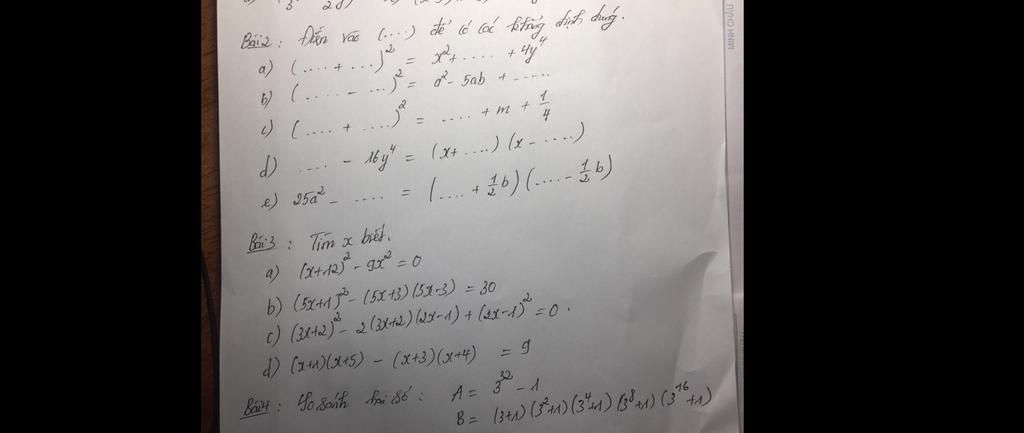 Bài 2 : Điền vào (....) để có các khẳng định đúng.
a) (.... + ...)² = x² + .... + 4y⁴
b) (.... - ...)² = a² - 5ab + .....
c) (.... + ....)² = .... + m + 1/4
d) .... - 16y⁴ = (x + ....) (x - ....)
e) 25a² - .... = (.... + 1/2 b) (.... - 1/2 b)
Bài 3 : Tìm x biết.
a) (x+12)² - 9x² = 0
b) (5x+1)² - (5x+3)(5x-3) = 30
c) (3x+2)² - 2(3x+2)(2x-1) + (2x-1)² = 0.
d) (x+1)(x+5) - (x+3)(x+4) = 9
Bài 4 : So sánh hai số : A = 3³² - 1
B = (3+1)(3²+1)(3⁴+1)(3⁸+1)(3¹⁶+1)
MINH CHÂU